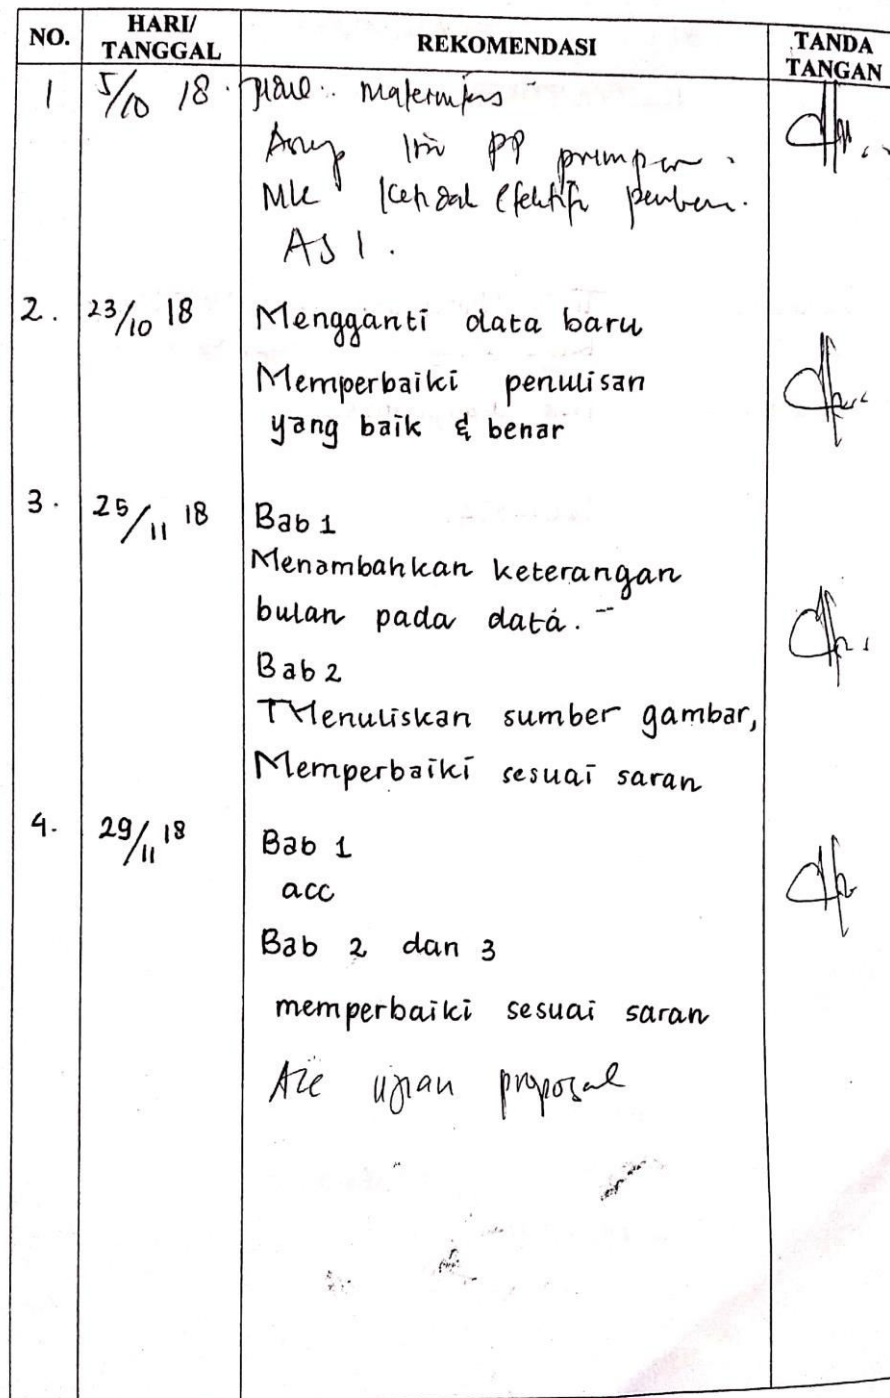 NO. HARI/ TANGGAL REKOMENDASI TANDA TANGAN
1 5/10 18
PP
ASI.
2. 23/10 18 Mengganti data baru
Memperbaiki penulisan
yang baik & benar
3. 25/11 18 Bab 1
Menambahkan keterangan
bulan pada data.
Bab 2
Menuliskan sumber gambar,
Memperbaiki sesuai saran
4. 29/11 18 Bab 1
acc
Bab 2 dan 3
memperbaiki sesuai saran
ujian proposal